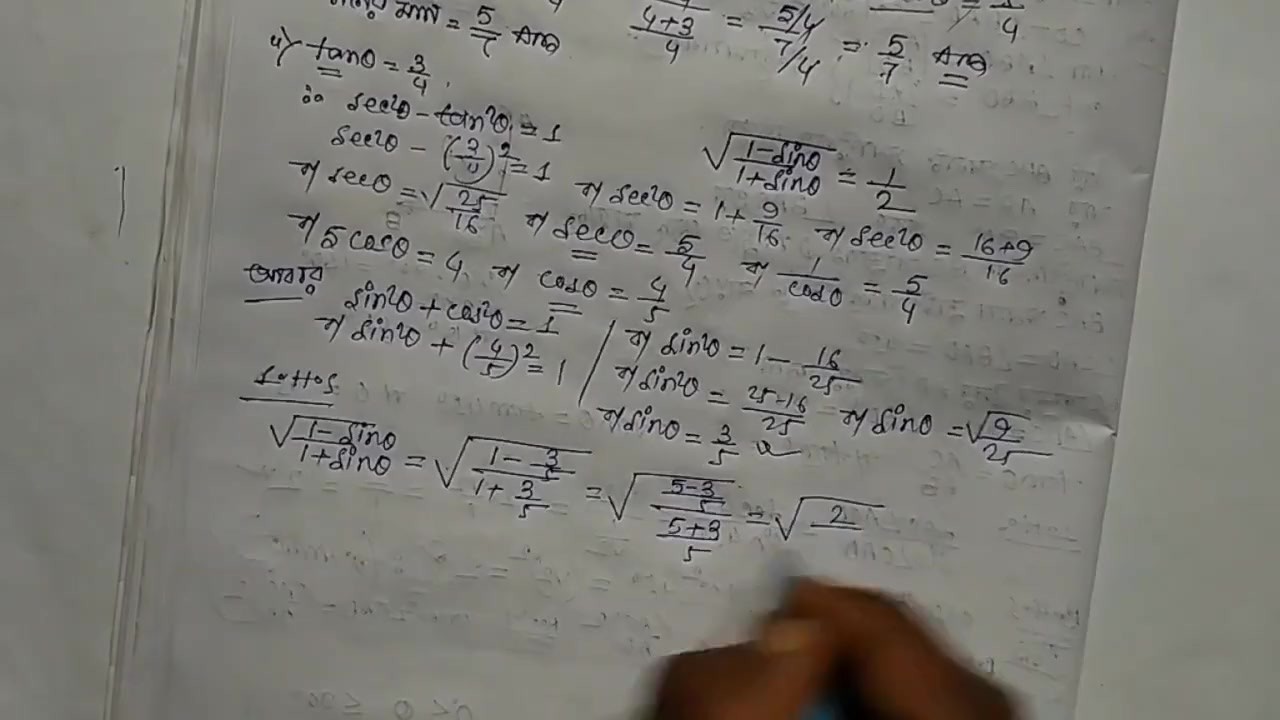 = 5/7 Ans
(4+3)/4 = (5/4)/(7/4) = 5/7 Ans
4) tanθ = 3/4
∴ sec²θ - tan²θ = 1
sec²θ - (3/4)² = 1
√((1-sinθ)/(1+sinθ)) = 1/2
বা sec²θ = 1 + 9/16 বা sec²θ = (16+9)/16
বা secθ = √(25/16) বা secθ = 5/4 বা 1/cosθ = 5/4
বা 5 cosθ = 4 বা cosθ = 4/5
আবার sin²θ + cos²θ = 1
বা sin²θ + (4/5)² = 1
বা sin²θ = 1 - 16/25
বা sin²θ = (25-16)/25 বা sinθ = √(9/25)
বা sinθ = 3/5
L.H.S
√((1-sinθ)/(1+sinθ)) = √((1-3/5)/(1+3/5)) = √(((5-3)/5)/((5+3)/5)) = √(2/